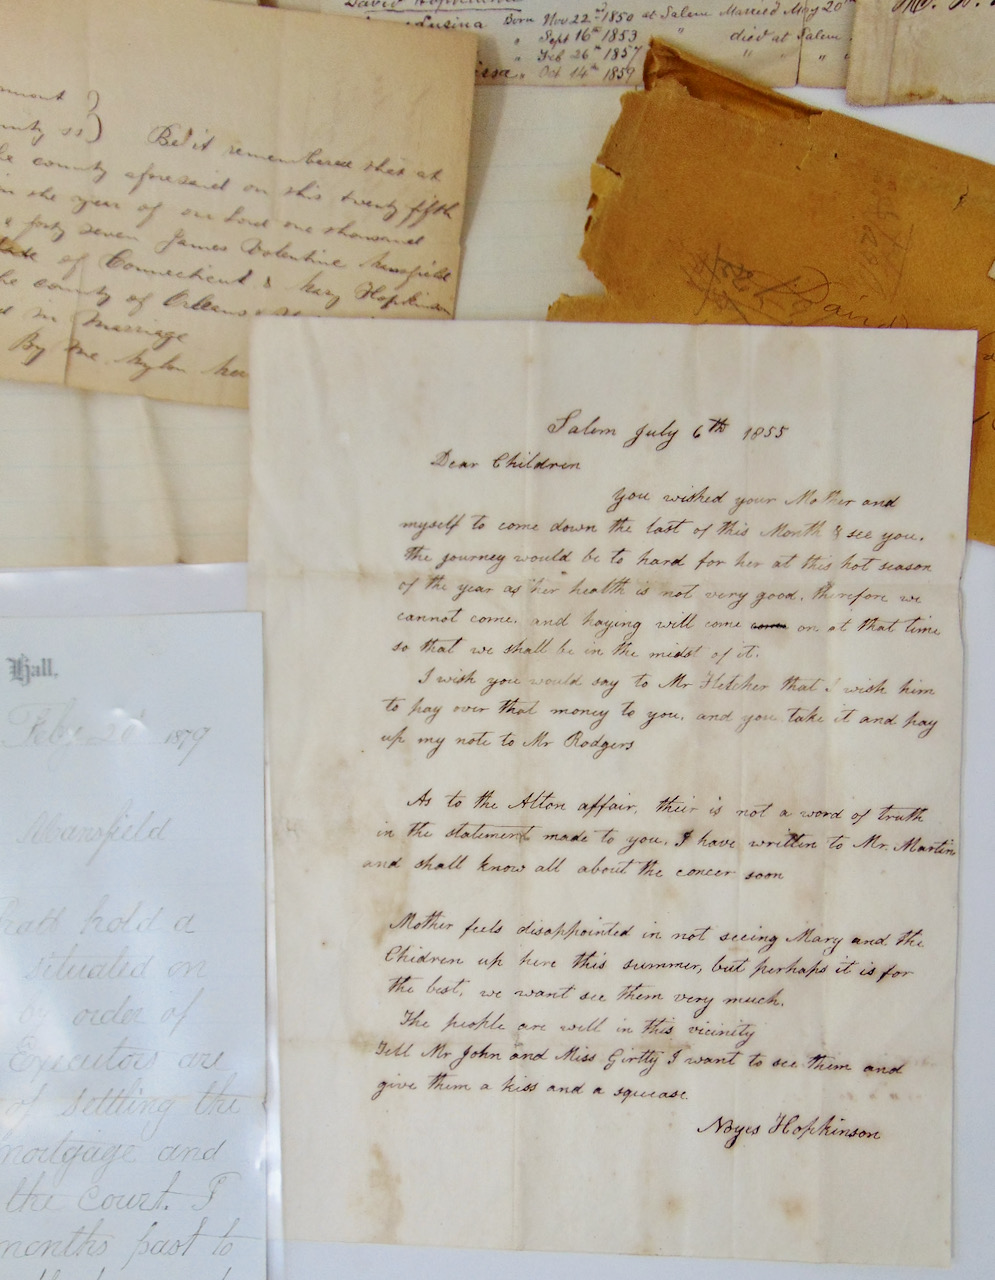 David Hopkinson
Lusina Born Nov 22nd 1850 at Salem Married May 20th
" Sept 16th 1853 " died at Salem
" Feb 26th 1857 " " "
" Oct 14th 1859
Be it remembered that at
county aforesaid on this twenty fifth
in the year of our Lord one thousand
forty seven James Valentine Mansfield
of Connecticut & Mary Hopkinson
the county of Orleans
in Marriage
By me
Salem July 6th 1855
Dear Children
You wished your Mother and
myself to come down the last of this Month & see you.
the journey would be to hard for her at this hot season
of the year as her health is not very good, therefore we
cannot come, and haying will come come on at that time
so that we shall be in the midst of it.
I wish you would say to Mr Fletcher that I wish him
to pay over that money to you, and you take it and pay
up my note to Mr Rodgers
As to the Alton affair, their is not a word of truth
in the statement made to you. I have written to Mr. Martin
and shall know all about the concer soon
Mother feels disappointed in not seeing Mary and the
Chidren up here this summer, but perhaps it is for
the best, we want see them very much.
The people are well in this vicinity
Tell Mr John and Miss Girtty I want to see them and
give them a kiss and a squease.
Noyes Hopkinson
Hall,
1879
Mansfield
hold a
situated on
order of
Executors are
of settling the
mortgage and
the court. I
months past to